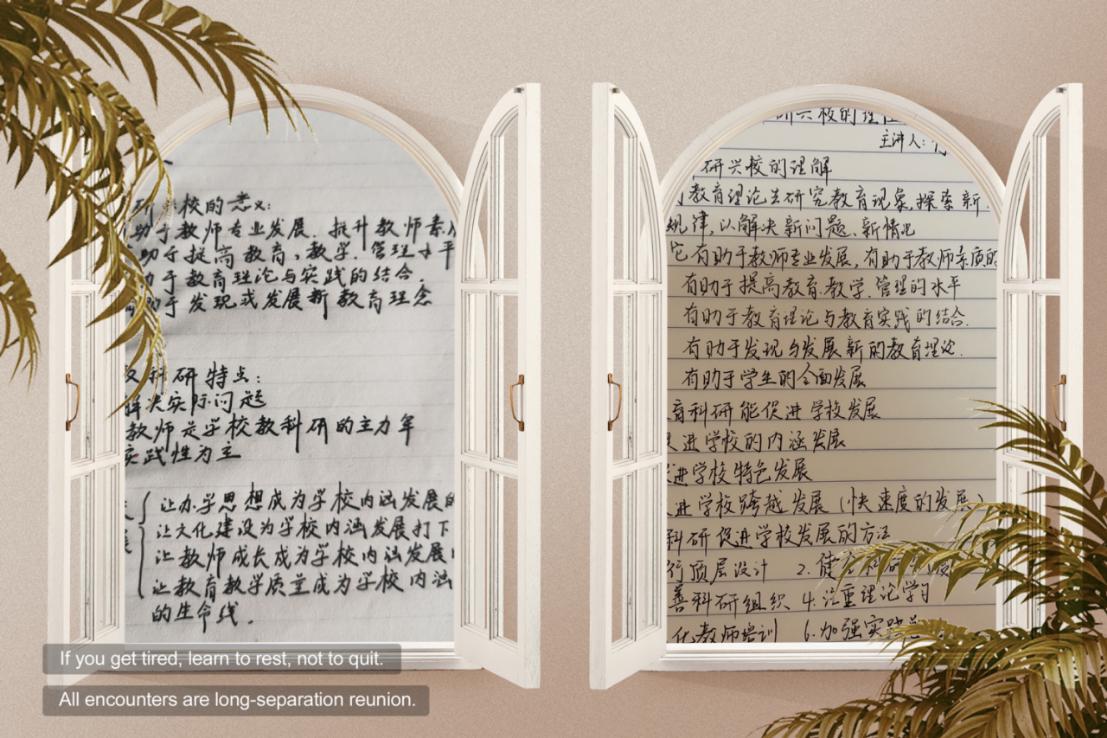 研 校的意义:
助于教师专业发展.提升教师素
助于提高教育、教学.管理水平
助于教育理论与实践的结合.
助于发现或发展新教育理念
科研特点:
解决实际问题
教师是学校教科研的主力军
实践性为主
让办学思想成为学校内涵发展的
让文化建设为学校内涵发展打下
让教师成长成为学校内涵发展
让教育教学质量成为学校内涵
的生命线.
研兴校的理
主讲人:
研兴校的理解
教育理论去研究教育现象,探索新
规律,以解决新问题、新情况
它有助于教师专业发展,有助于教师素质的
有助于提高教育.教学.管理的水平
有助于教育理论与教育实践的结合.
有助于发现与发展新的教育理论.
有助于学生的全面发展
育科研能促进学校发展
进学校的内涵发展
进学校特色发展
进学校跨越发展(快速度的发展)
科研促进学校发展的方法
行顶层设计 2.健全科研
善科研组织 4.注重理论学习
化教师培训 6.加强实践
If you get tired, learn to rest, not to quit.
All encounters are long-separation reunion.